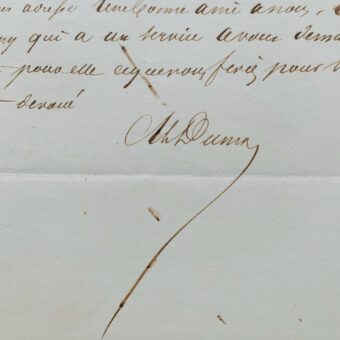 adresse une bonne amie a nous,
qui a un service a vous dema
pour elle ce que vous feriez pour
devoué
Dumas